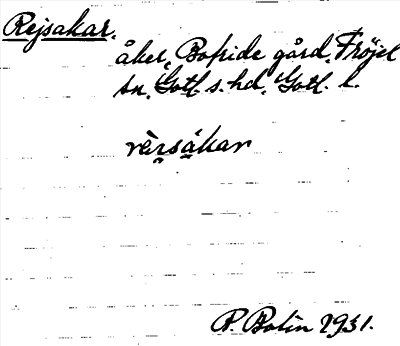 Rejsakar.
åker, Bofride gård, Fröjel
sn. Gotl. s. hd, Gotl. l.
rèrsákar
P. Bolin 1931.